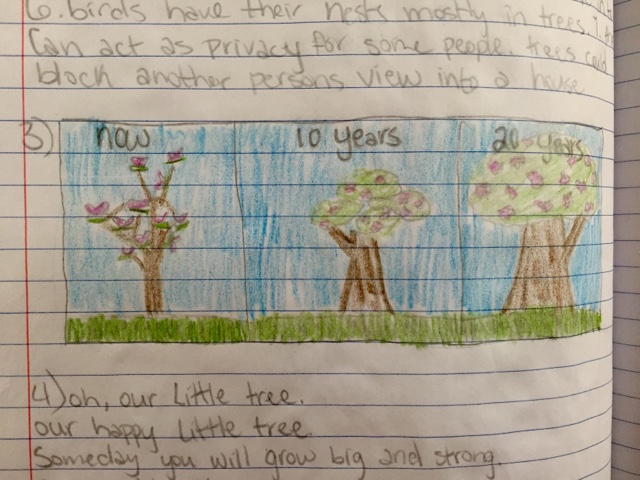 6. birds have their nests mostly in trees. 7.
Can act as privacy for some people. trees could
block another persons view into a house
3)
now
10 years
20 years
4) oh, our little tree.
our happy little tree.
Someday you will grow big and strong.